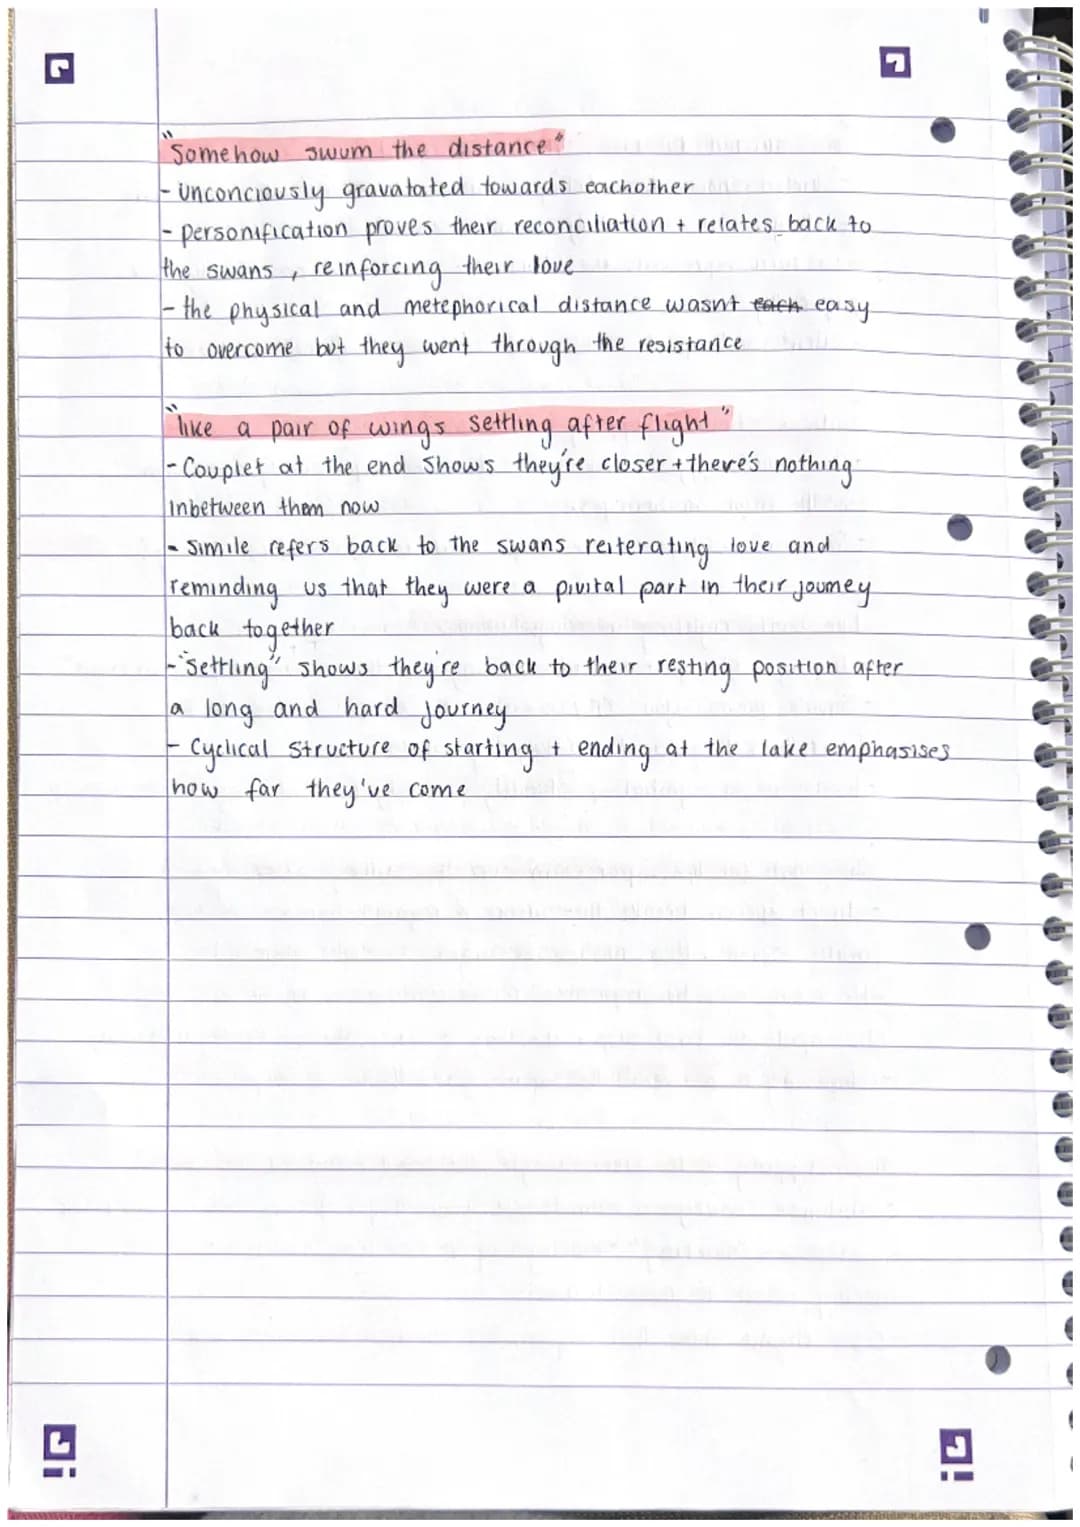 "Somehow swum the distance"
- Unconciously gravatated towards eachother
- personification proves their reconciliation + relates back to
the swans, reinforcing their love
- the physical and metephorical distance wasnt each easy
to overcome but they went through the resistance
"like a pair of wings settling after flight"
- Couplet at the end shows they're closer + there's nothing
inbetween them now
- Simile refers back to the swans reiterating love and
reminding us that they were a pivital part in their journey
back together
- "Settling" shows they're back to their resting position after
a long and hard journey
- Cyclical structure of starting + ending at the lake emphasises
how far they've come